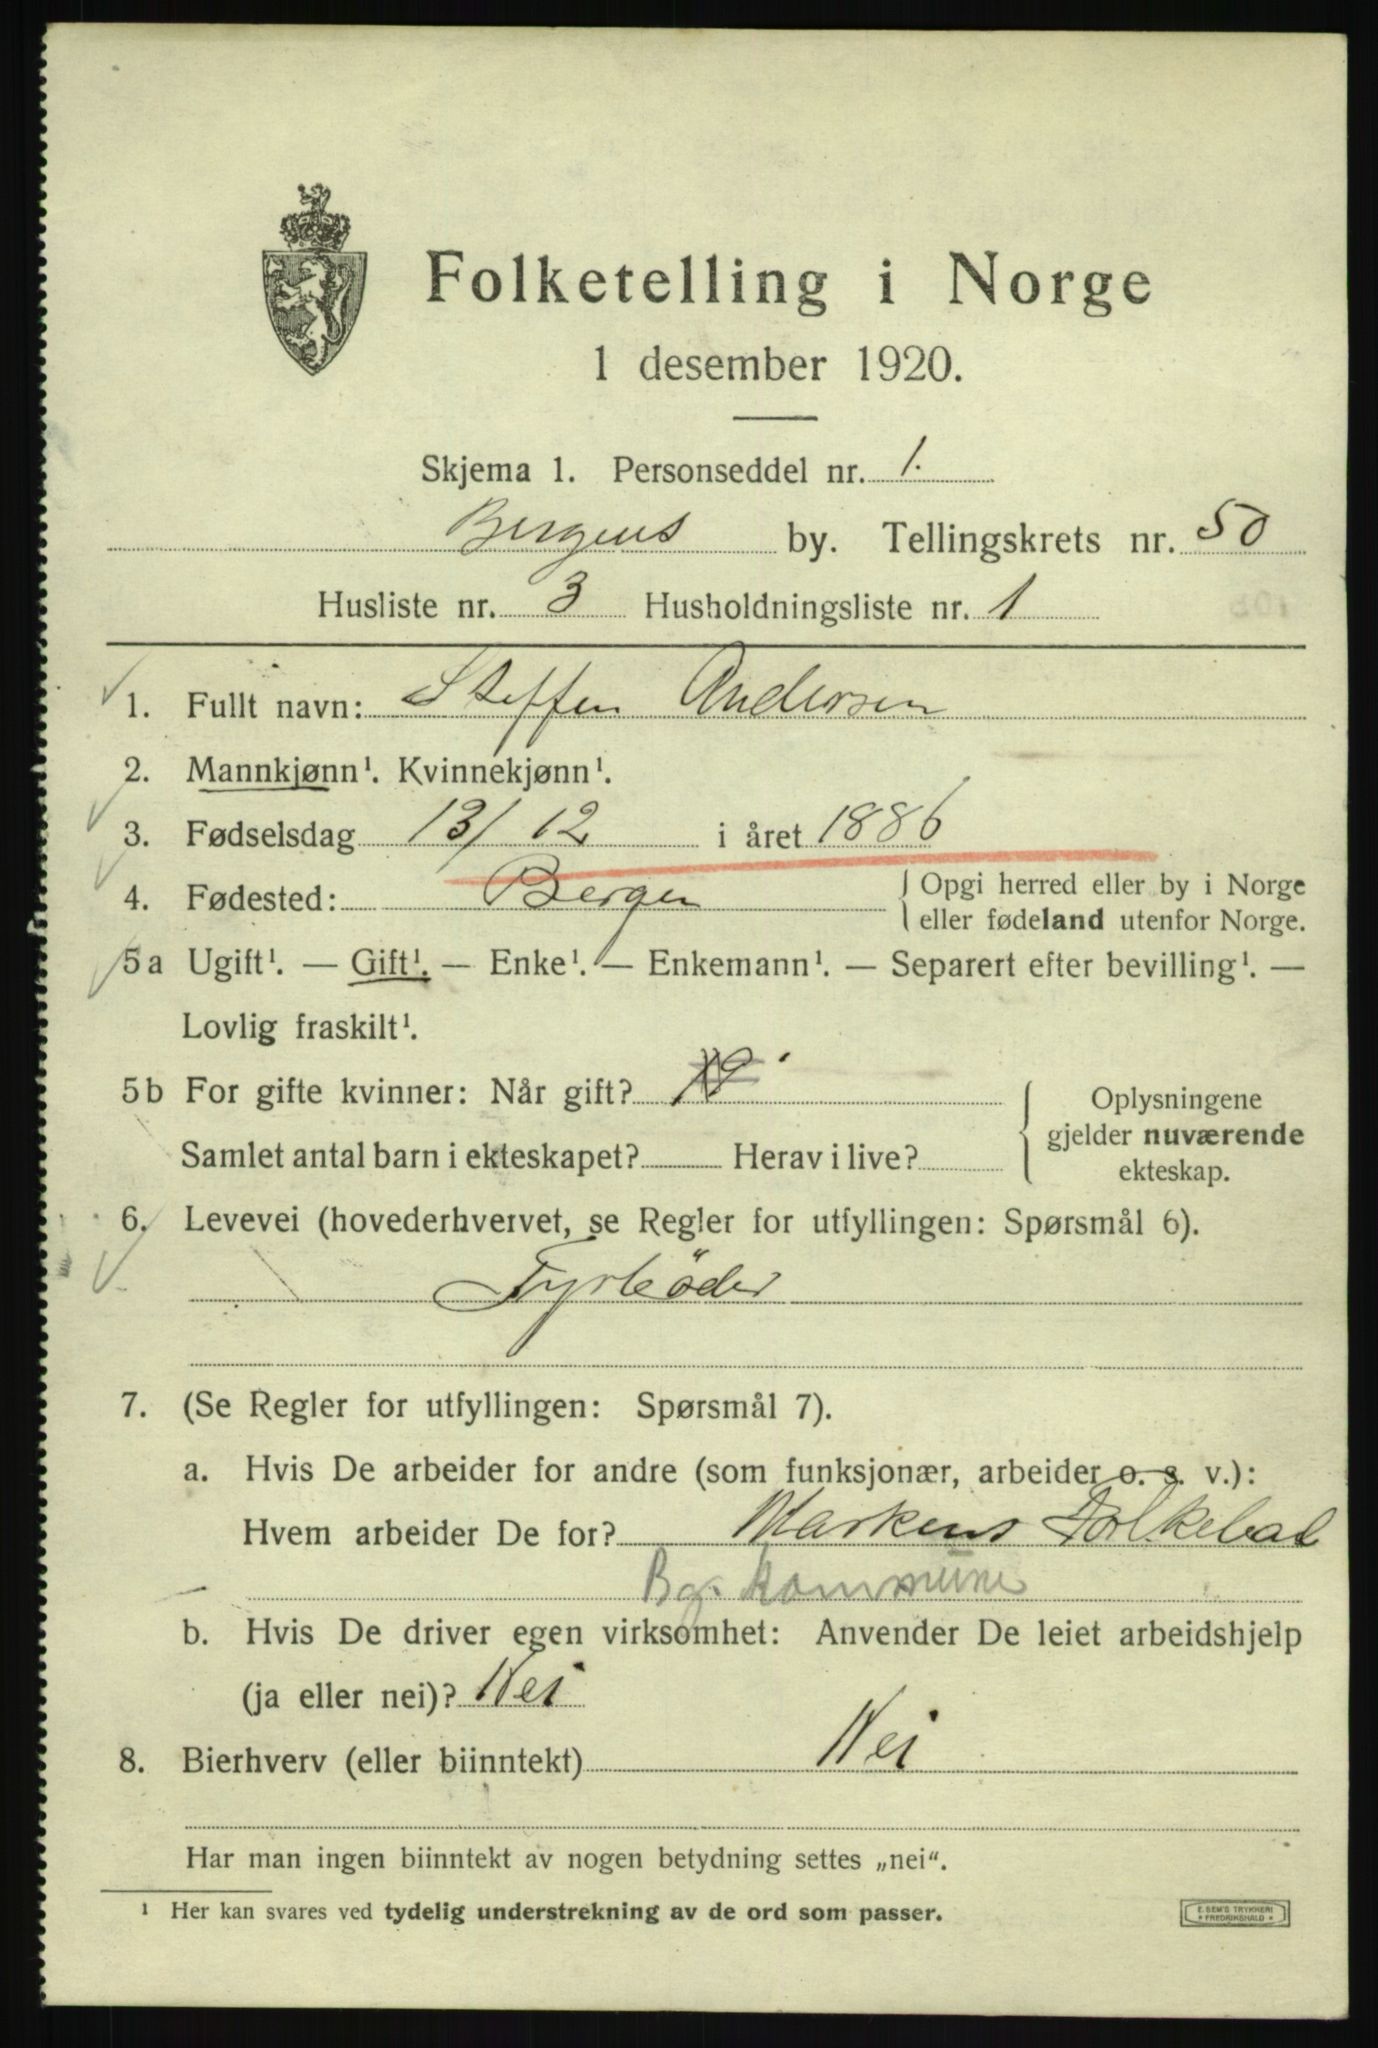 Folketelling i Norge
1 desember 1920.
Skjema 1. Personseddel nr. 1.
Bergens by. Tellingskrets nr. 50
Husliste nr. 3 Husholdningsliste nr. 1
1. Fullt navn: Steffen Andersen
2. Mannkjønn¹. Kvinnekjønn¹.
3. Fødselsdag 13/12 i året 1886
4. Fødested: Bergen { Opgi herred eller by i Norge
eller fødeland utenfor Norge.
5a Ugift¹. — Gift¹. — Enke¹. — Enkemann¹. — Separert efter bevilling¹. —
Lovlig fraskilt¹.
5b For gifte kvinner: Når gift?
Samlet antal barn i ekteskapet? Herav i live?
{ Oplysningene
gjelder nuværende
ekteskap.
6. Levevei (hovederhvervet, se Regler for utfyllingen: Spørsmål 6).
Fyrböder
7. (Se Regler for utfyllingen: Spørsmål 7).
a. Hvis De arbeider for andre (som funksjonær, arbeider o. s. v.):
Hvem arbeider De for? Markens Folkebad
Bg. kommune
b. Hvis De driver egen virksomhet: Anvender De leiet arbeidshjelp
(ja eller nei)? Nei
8. Bierhverv (eller biinntekt) Nei
Har man ingen biinntekt av nogen betydning settes „nei“.
¹ Her kan svares ved tydelig understrekning av de ord som passer.
E. SEM'S TRYKKERI
* FREDRIKSHALD *